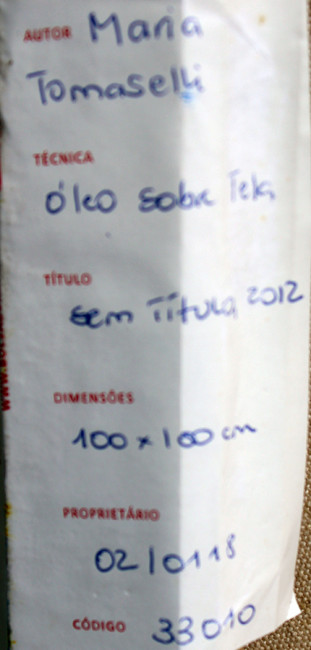 AUTOR Maria
Tomaselli
TÉCNICA
óleo sobre Tela
TÍTULO
Sem Título, 2012
DIMENSÕES
100 x 100 cm
PROPRIETÁRIO
02/0118
CÓDIGO 33010